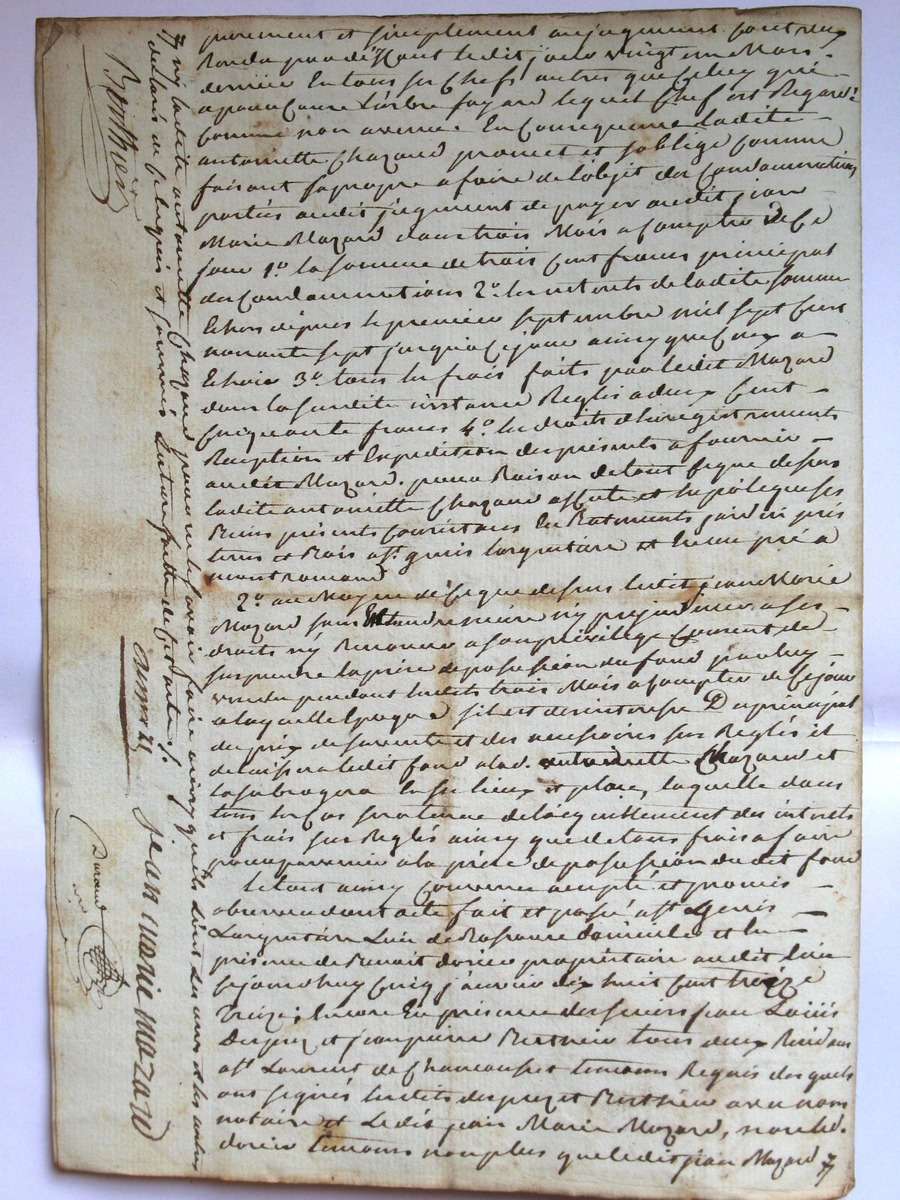 purement et simplement au jugement contre eux
Rendu par défaut ledit jour vingt un Mars
dernier En tous ses Chefs autres que Celuy qui
a pour Cause l'arbre fayard lequel Chef est Regardé
Comme non avenu. En Consequence ladite
antoinette Chazaud promet et s'oblige Comme
faisant sa propre affaire de l'objet des Condamnations
portées audit jugement de payer audit jean
Marie Mazard dans trois Mois a Compter de Ce
jour 1º la somme de trois Cent francs principal
des Condamnations 2º les interets de ladite somme
Echus depuis le premier septembre mil sept Cent
nonante sept jusqu'a Ce jour ainsy que Ceux a
Echoir 3º tous les frais faits par ledit Mazard
dans la susdite instance Reglés a deux Cent
Cinquante francs 4º les droits d'Enregistrements
Reception et Expedition des présents a fournir
audit Mazard. pour Raison de tout Ce que dessus
ladite antoinette Chazaud affecte et hipoteque ses
Biens présents Consistants En Batiments jardin prés
terres et Bois a St. genis largentiere et En un pré a
montromand
2º au Moyen de Ce que dessus ledit jean Marie
Mazard sans Entendre nuire ny prejudicier a ses
droits ny Renoncer a son privilege Consent de
suspendre la prise de possession du fond par luy
vendu pendant lesdits trois Mois a Compter de Ce jour
a laquelle Epoque s'il est desinteressé Du principal
du prix de sa vente et des accessoires sus Reglés il
delaissera ledit fond a lad. antoinette Chazaud et
la subrogera En ses lieux et place, laquelle dans
tous les Cas sera tenue de l'acquittement des interets
et frais sus Reglés ainsy que de tous frais a faire
pour parvenir a la prise de possession du dit fond
le tout ainsy Convenu accepté et promis
observer dont acte fait et passé a St. Genis
Largentiere Lieu de domicile et En
présence de Benoit dorier propriétaire audit lieu
Cejourdhuy Cinq janvier dix huit Cent treize
treize; Encore En présence des sieurs jean Louis
Desprez et jean pierre Berthier tous deux Residans
a St. Laurent de Chamousset temoins Requis des quels
ont signés lesdits desprez et Berthier avec nous
notaire et Ledit jean Marie Mazard, non led.
dorier temoins non plus que ledit jean Mazard
ny ladite antoinette Chazaud pour ne le savoir faire ainsy qu'ils l'ont dit ces et les autres
declaré de Ce Enquis et sommés Lecture faite
Berthier
jean marie mazard
Durand